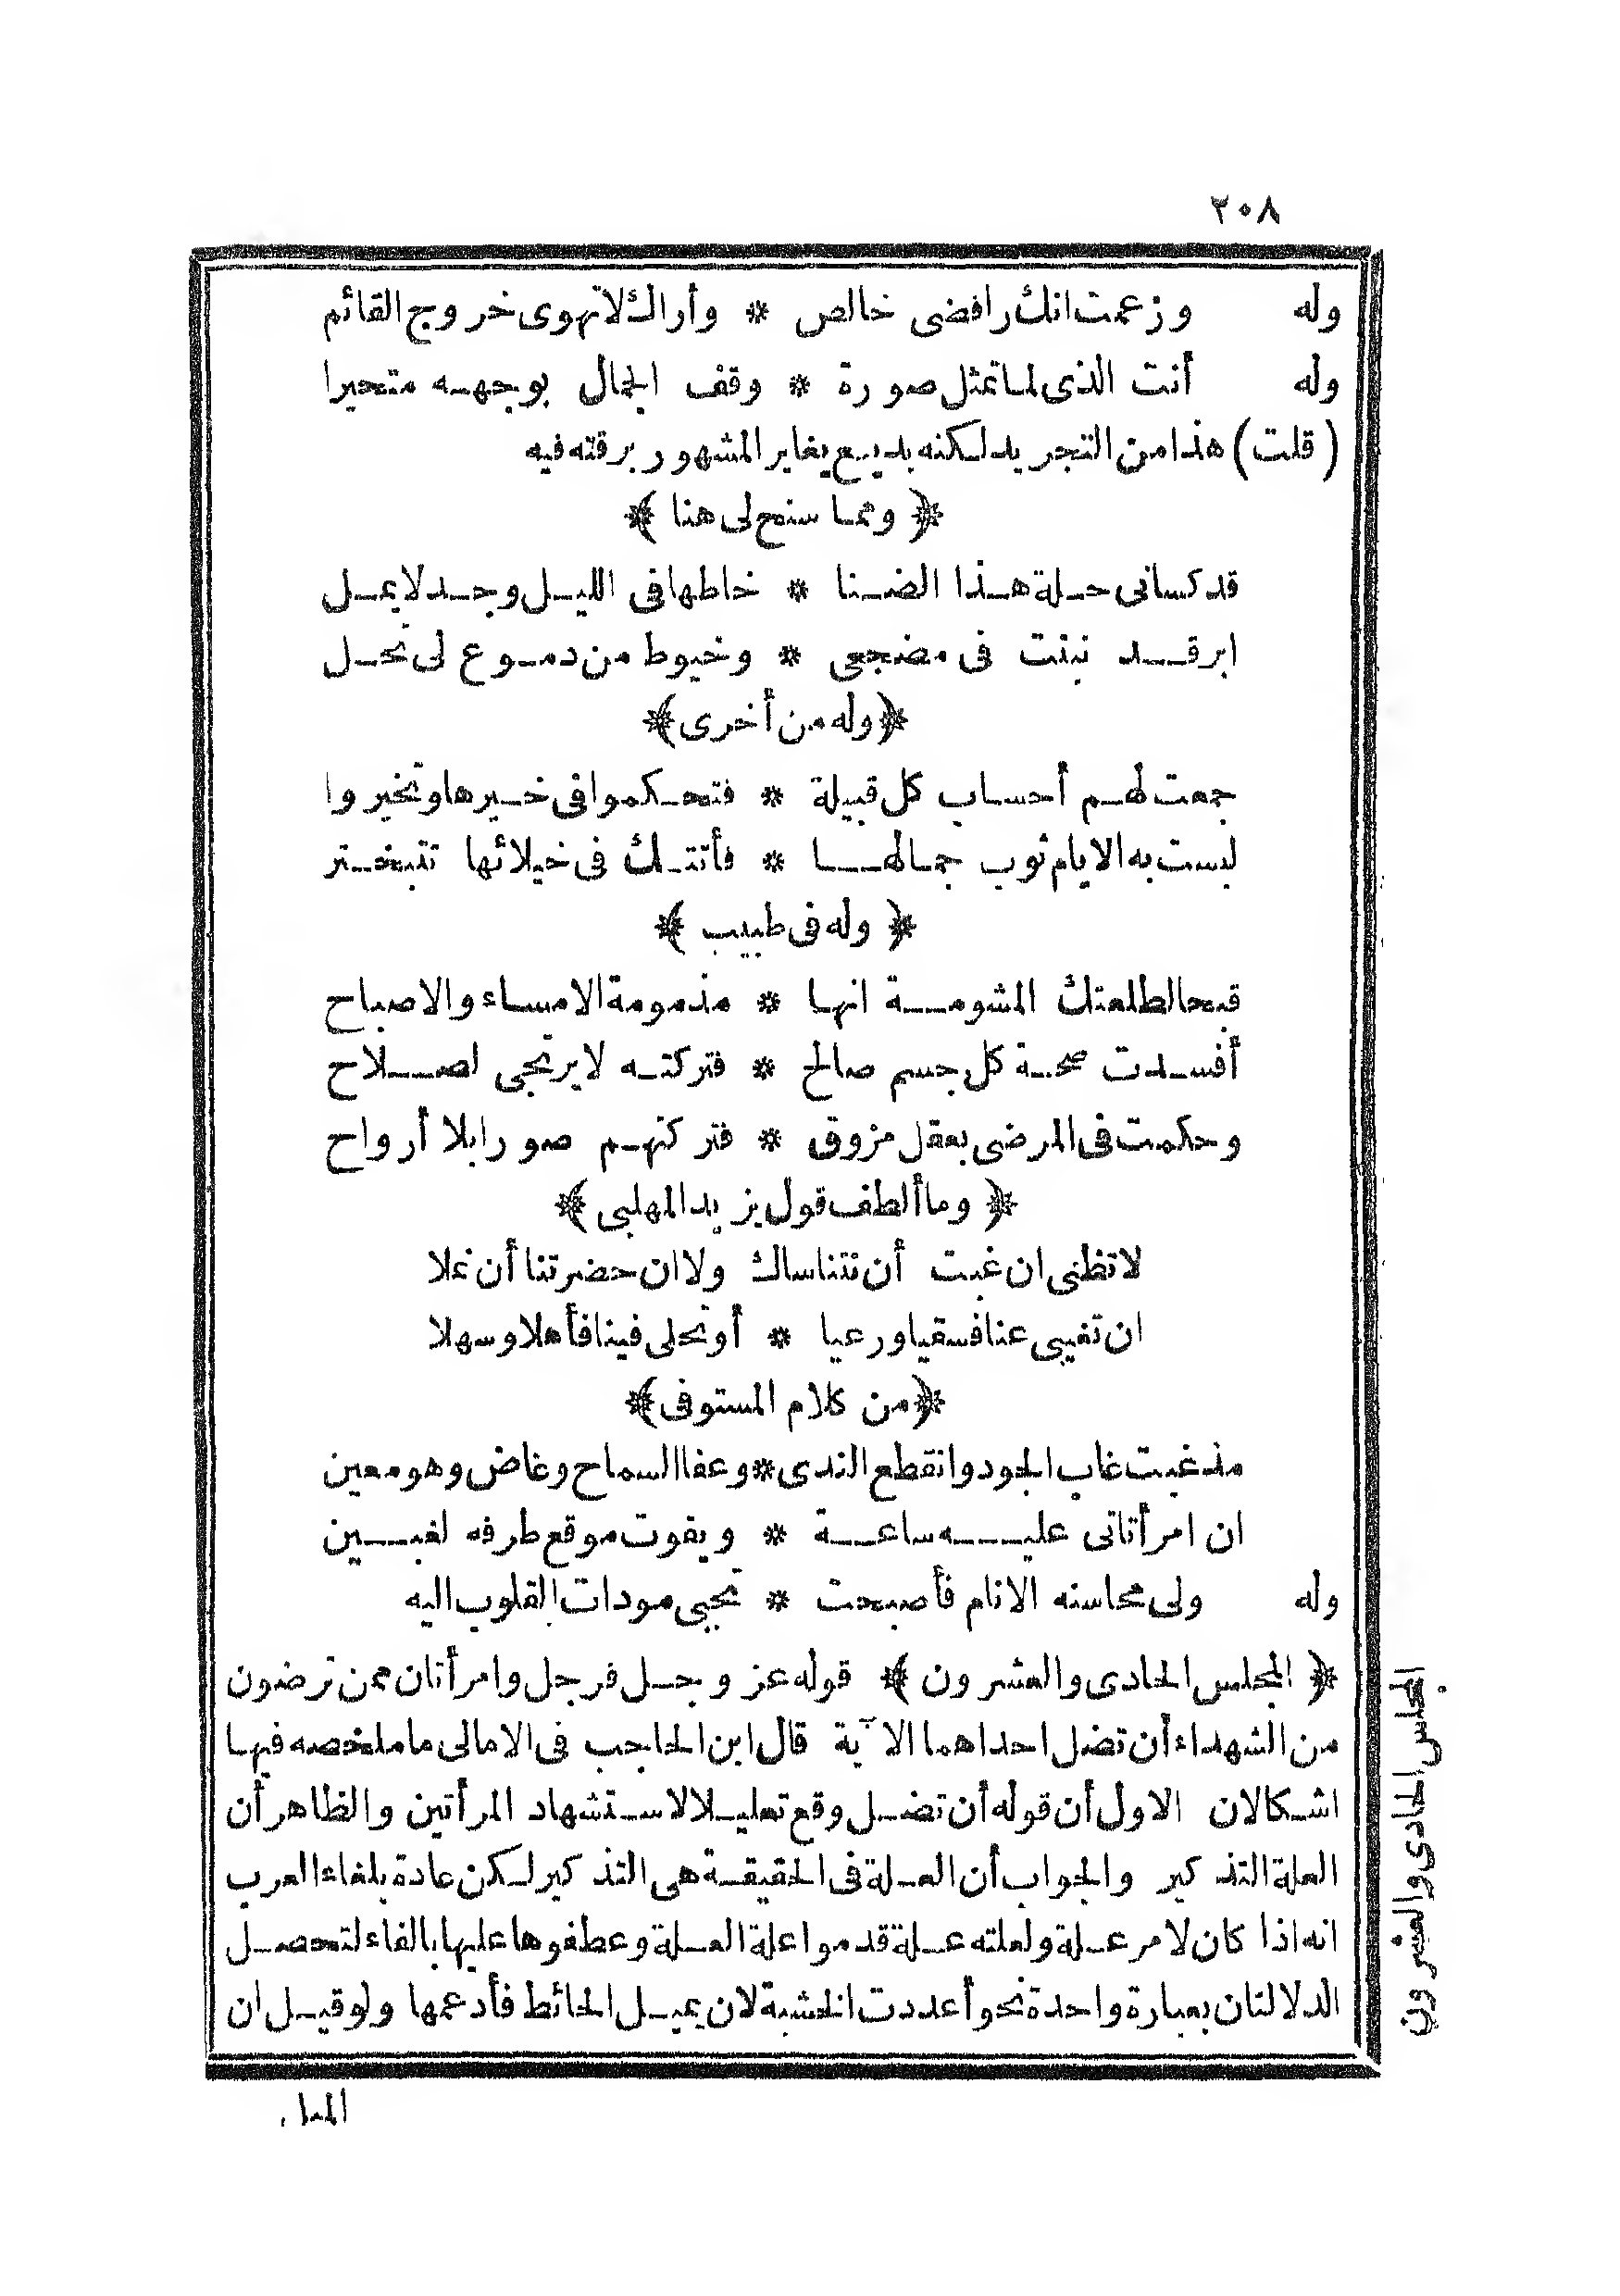 ٢٠٨
وله وزعمت انك رافضى خالص * وأراك لا تهوى خروج القائم
وله أنت الذى لما تمثل صورة * وقف الجمال بوجهه متحيرا
(قلت) هذا من التجريد لكنه بديع يغاير المشهور برقته فيه
﴿ ومما سنح لى هنا ﴾
قد كسانى حلة هذا الضنا * خاطها فى الليل وجد لا يمل
ابر قد نبتت فى مضجعى * وخيوط من دموع لى تحل
﴿ وله من أخرى ﴾
جمعت لهم أحساب كل قبيلة * فتحكموا فى خيرها وتخيروا
لبست به الايام ثوب جمالها * فأتتك فى خيلائها تتبختر
﴿ وله فى طبيب ﴾
قبحا لطلعتك المشومة انها * مذمومة الامساء والاصباح
أفسدت صحة كل جسم صالح * فتركته لا يرتجى لصلاح
وحكمت فى المرضى بعقل مزوق * فتركتهم صورا بلا أرواح
﴿ وما ألطف قول يزيد المهلبى ﴾
لا تظنى ان غبت أن نتناساك ولا ان حضرتنا أن نملا
ان تغيبى عنا فسقيا ورعيا * أو تحلى فينا فأهلا وسهلا
﴿ من كلام المستوفى ﴾
مذ غبت غاب الجود وانقطع الندى * وعفا السماح وغاض وهو معين
ان امرأ تاتى عليه ساعة * ويفوت موقع طرفه لغبين
وله ولى محاسنه الانام فأصبحت * تجبى مودات القلوب اليه
﴿ المجلس الحادى والعشرون ﴾ قوله عز وجل فرجل وامرأتان ممن ترضون
من الشهداء أن تضل احداهما الآية قال ابن الحاجب فى الامالى ما ملخصه فيها
اشكالان الاول أن قوله أن تضل وقع تعليلا لاستشهاد المرأتين والظاهر أن
العلة التذكير والجواب أن العلة فى الحقيقة هى التذكير لكن عادة بلغاء العرب
انه اذا كان لامر علة ولعلته علة قدموا علة العلة وعطفوها عليها بالفاء لتحصل
الدلالتان بعبارة واحدة نحو أعددت الخشبة لان يميل الحائط فأدعمها ولو قيل ان
المجلس الحادى والعشرون